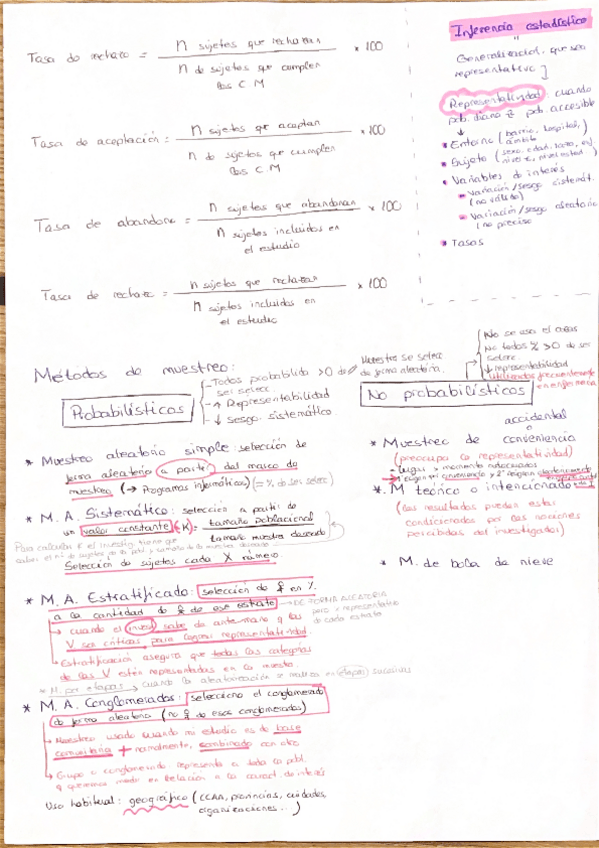 Tasa de rechazo = n sujetos que rechazan / n de sujetos que cumplen los C M × 100
Tasa de aceptación = n sujetos que aceptan / n de sujetos que cumplen los C M × 100
Tasa de abandono = n sujetos que abandonan / n sujetos incluidos en el estudio × 100
Tasa de rechazo = n sujetos que rechazan / n sujetos incluidos en el estudio × 100
Inferencia estadística
Generalización, que sea
representativo
Representatividad: cuando
pob. diana pob. accesible
• Entorno (barrio, hospital,
ámbito)
• Sujeto (sexo, edad, raza,
• Variables de interés
Variación/sesgo sistemát.
(no válido)
Variación/sesgo aleatorio
(no preciso)
• Tasas
Métodos de muestreo:
Probabilísticos
- Todos probabilida >0 de
ser selecc.
- ↑ Representabilidad
- ↓ Sesgo sistemático
Muestra se selecc
de forma aleatoria.
No probabilísticos
No se usa el azar
No todos % >0 de ser
selecc
↓ representabilidad
Utilizados frecuentemente
en enfermería
* Muestreo aleatorio simple: selección de
forma aleatoria a partir del marco de
muestreo (→ Programas informáticos) (= % de ser selecc)
* M. A. Sistemático: selección a partir de
un valor constante (K) = tamaño poblacional / tamaño muestra deseado
Para calcular K el investig. tiene que
saber el nº de sujetos de la pobl. y tamaño de la muestra
Selección de sujetos cada X número.
* M. A. Estratificado: selección de en %
a la cantidad de de ese estrato
→ DE FORMA ALEATORIA
pero representativo
de cada estrato
→ cuando el invest sabe de antemano q las
V ser críticas para lograr representatividad.
→ Estratificación asegura que todas las categorías
de las V estén representadas en la muestra.
* M. por etapas → cuando la aleatorización se realiza en etapas sucesivas
* M. A. Conglomerados: selecciono el conglomerado
de forma aleatoria (no de esos conglomerados)
→ Muestreo usado cuando mi estudio es de base
comunitaria + normalmente, combinado con otro
→ Grupo o conglomerado representa a toda la pobl.
q queremos medir en relación a la caract. de interés
Uso habitual: geográfico (CCAA, provincias, ciudades,
organizaciones...)
accidental
o
* Muestreo de conveniencia
(preocupa la representatividad)
- Lugar y momento
* M teórico o intencionado
(los resultados pueden estar
condicionados por las nociones
percibidas del investigador)
* M. de bola de nieve